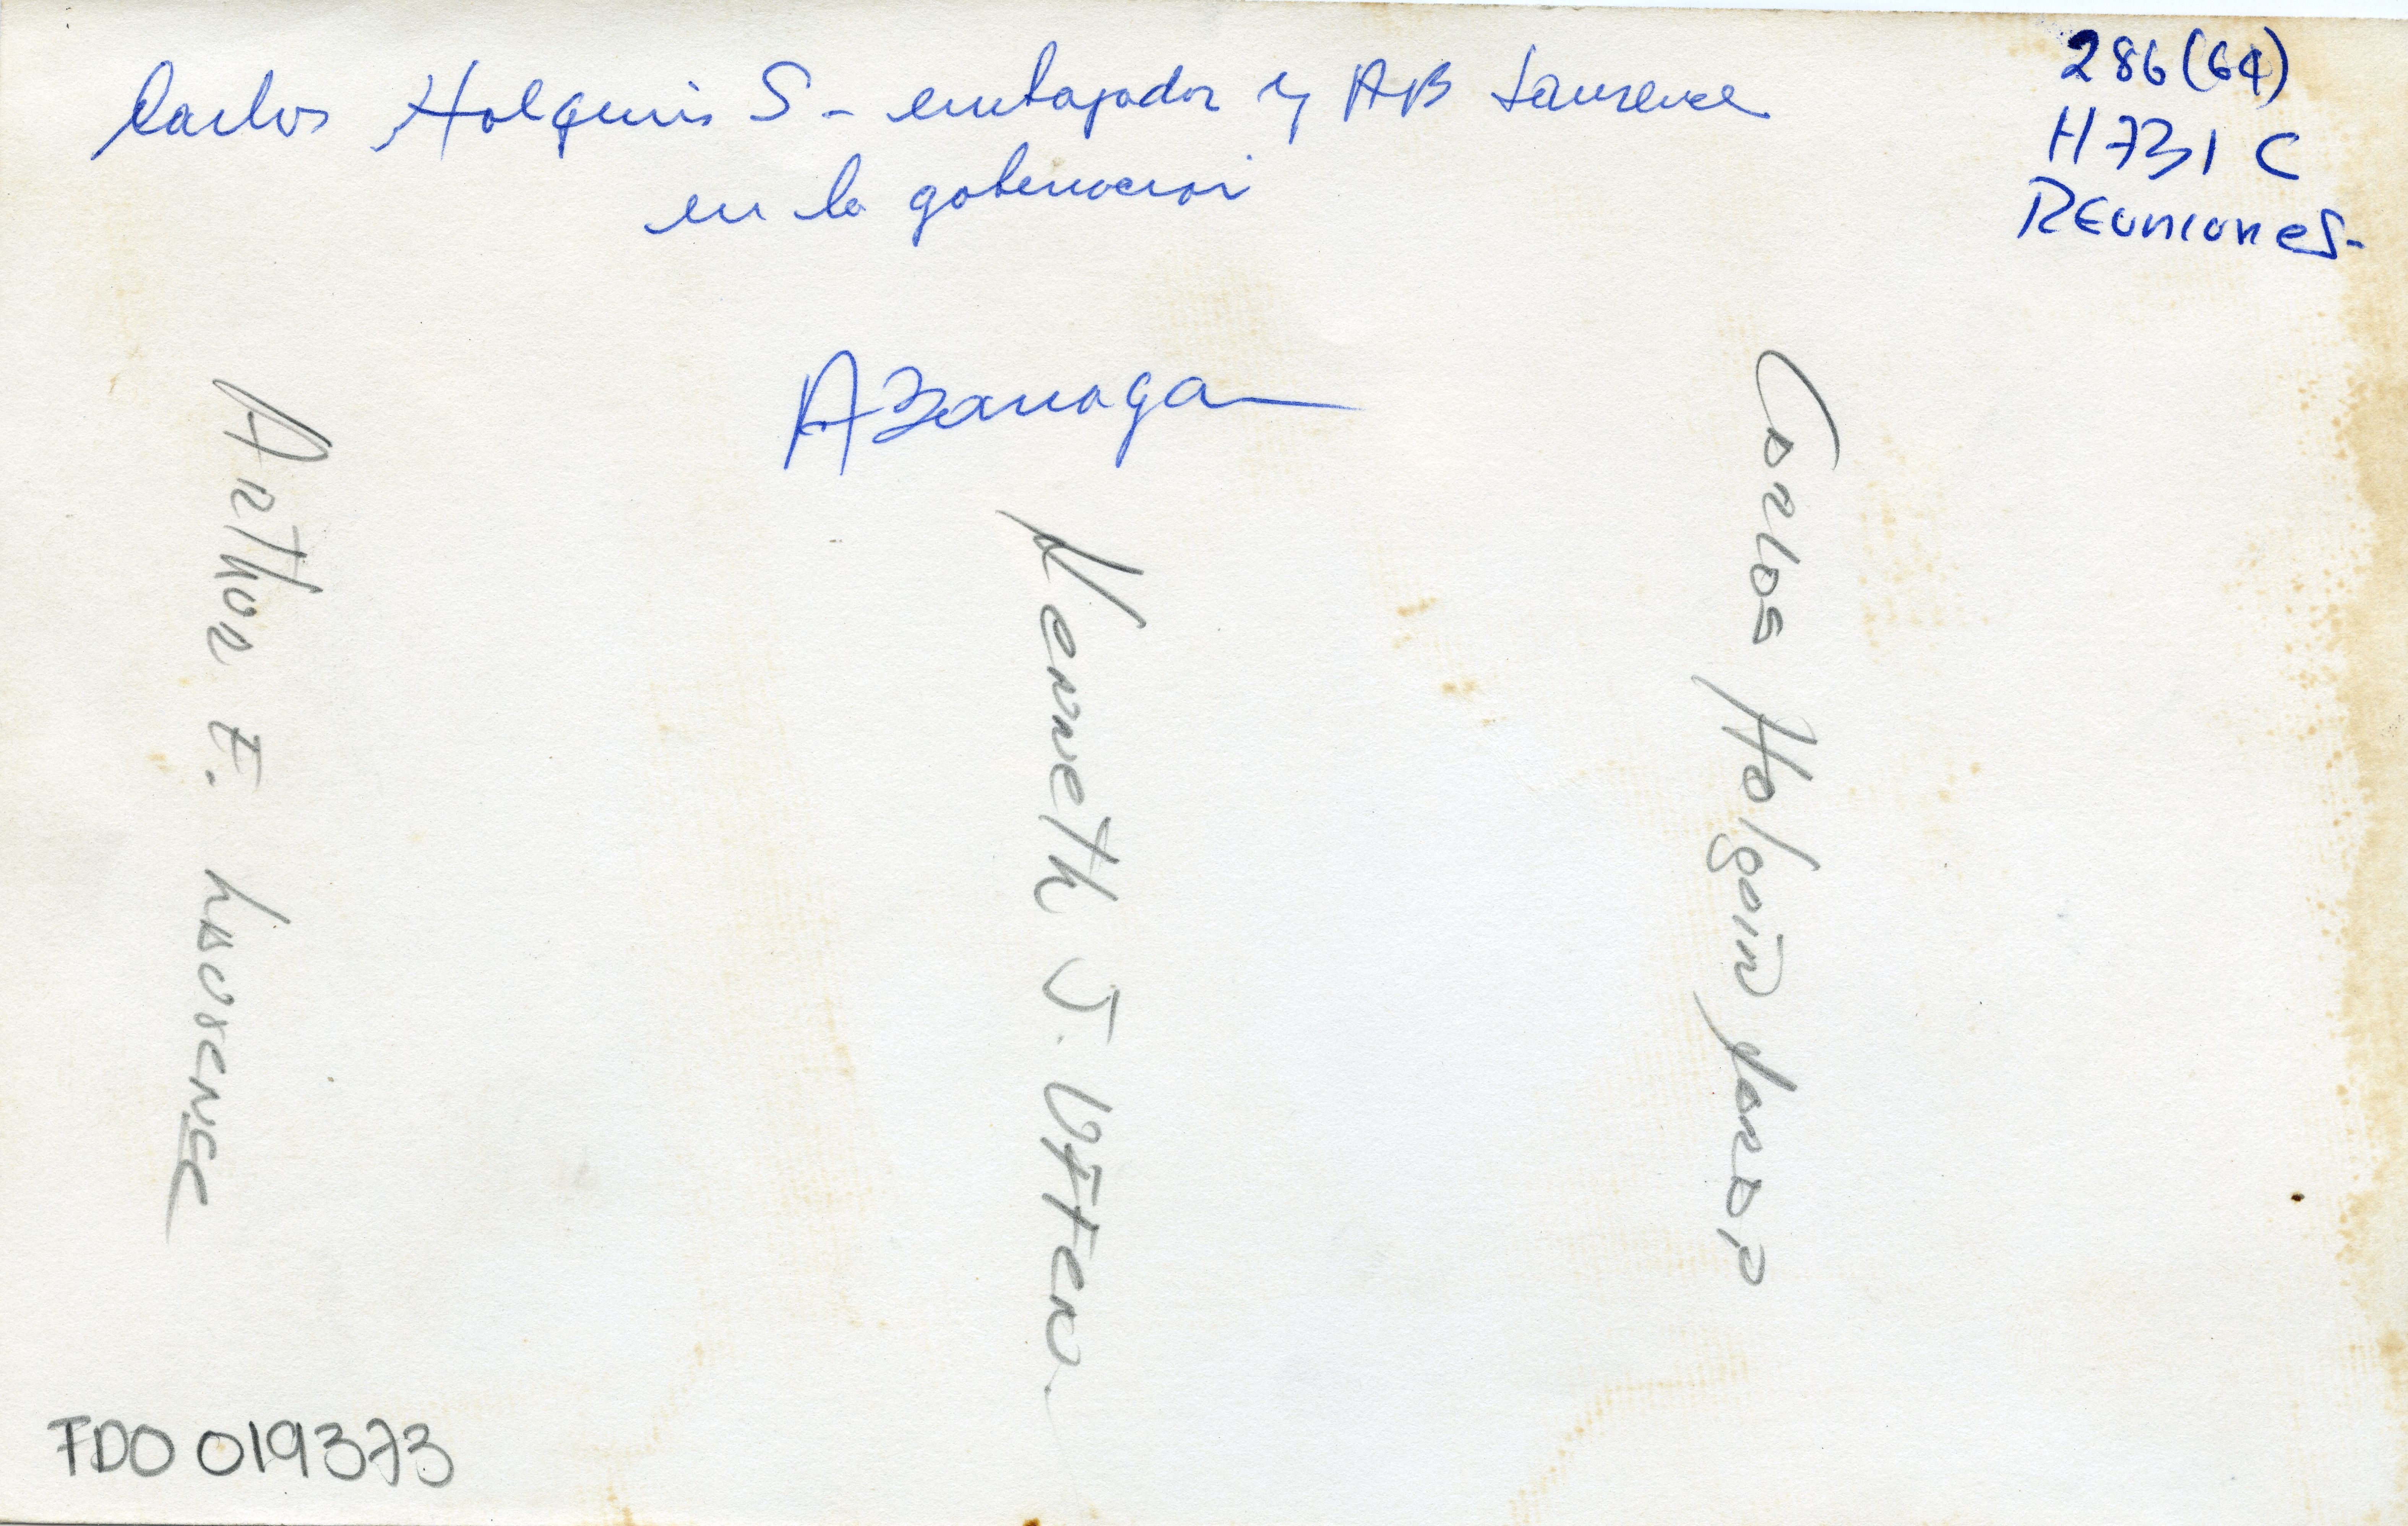 Carlos Holguin S - embajador y AB Laurence
en la gobernacion
286(64)
H731C
REuniones-
Arthur E. Laurence
Kenneth J. Uffen
Carlos Holguin Sardi
FDO 019373